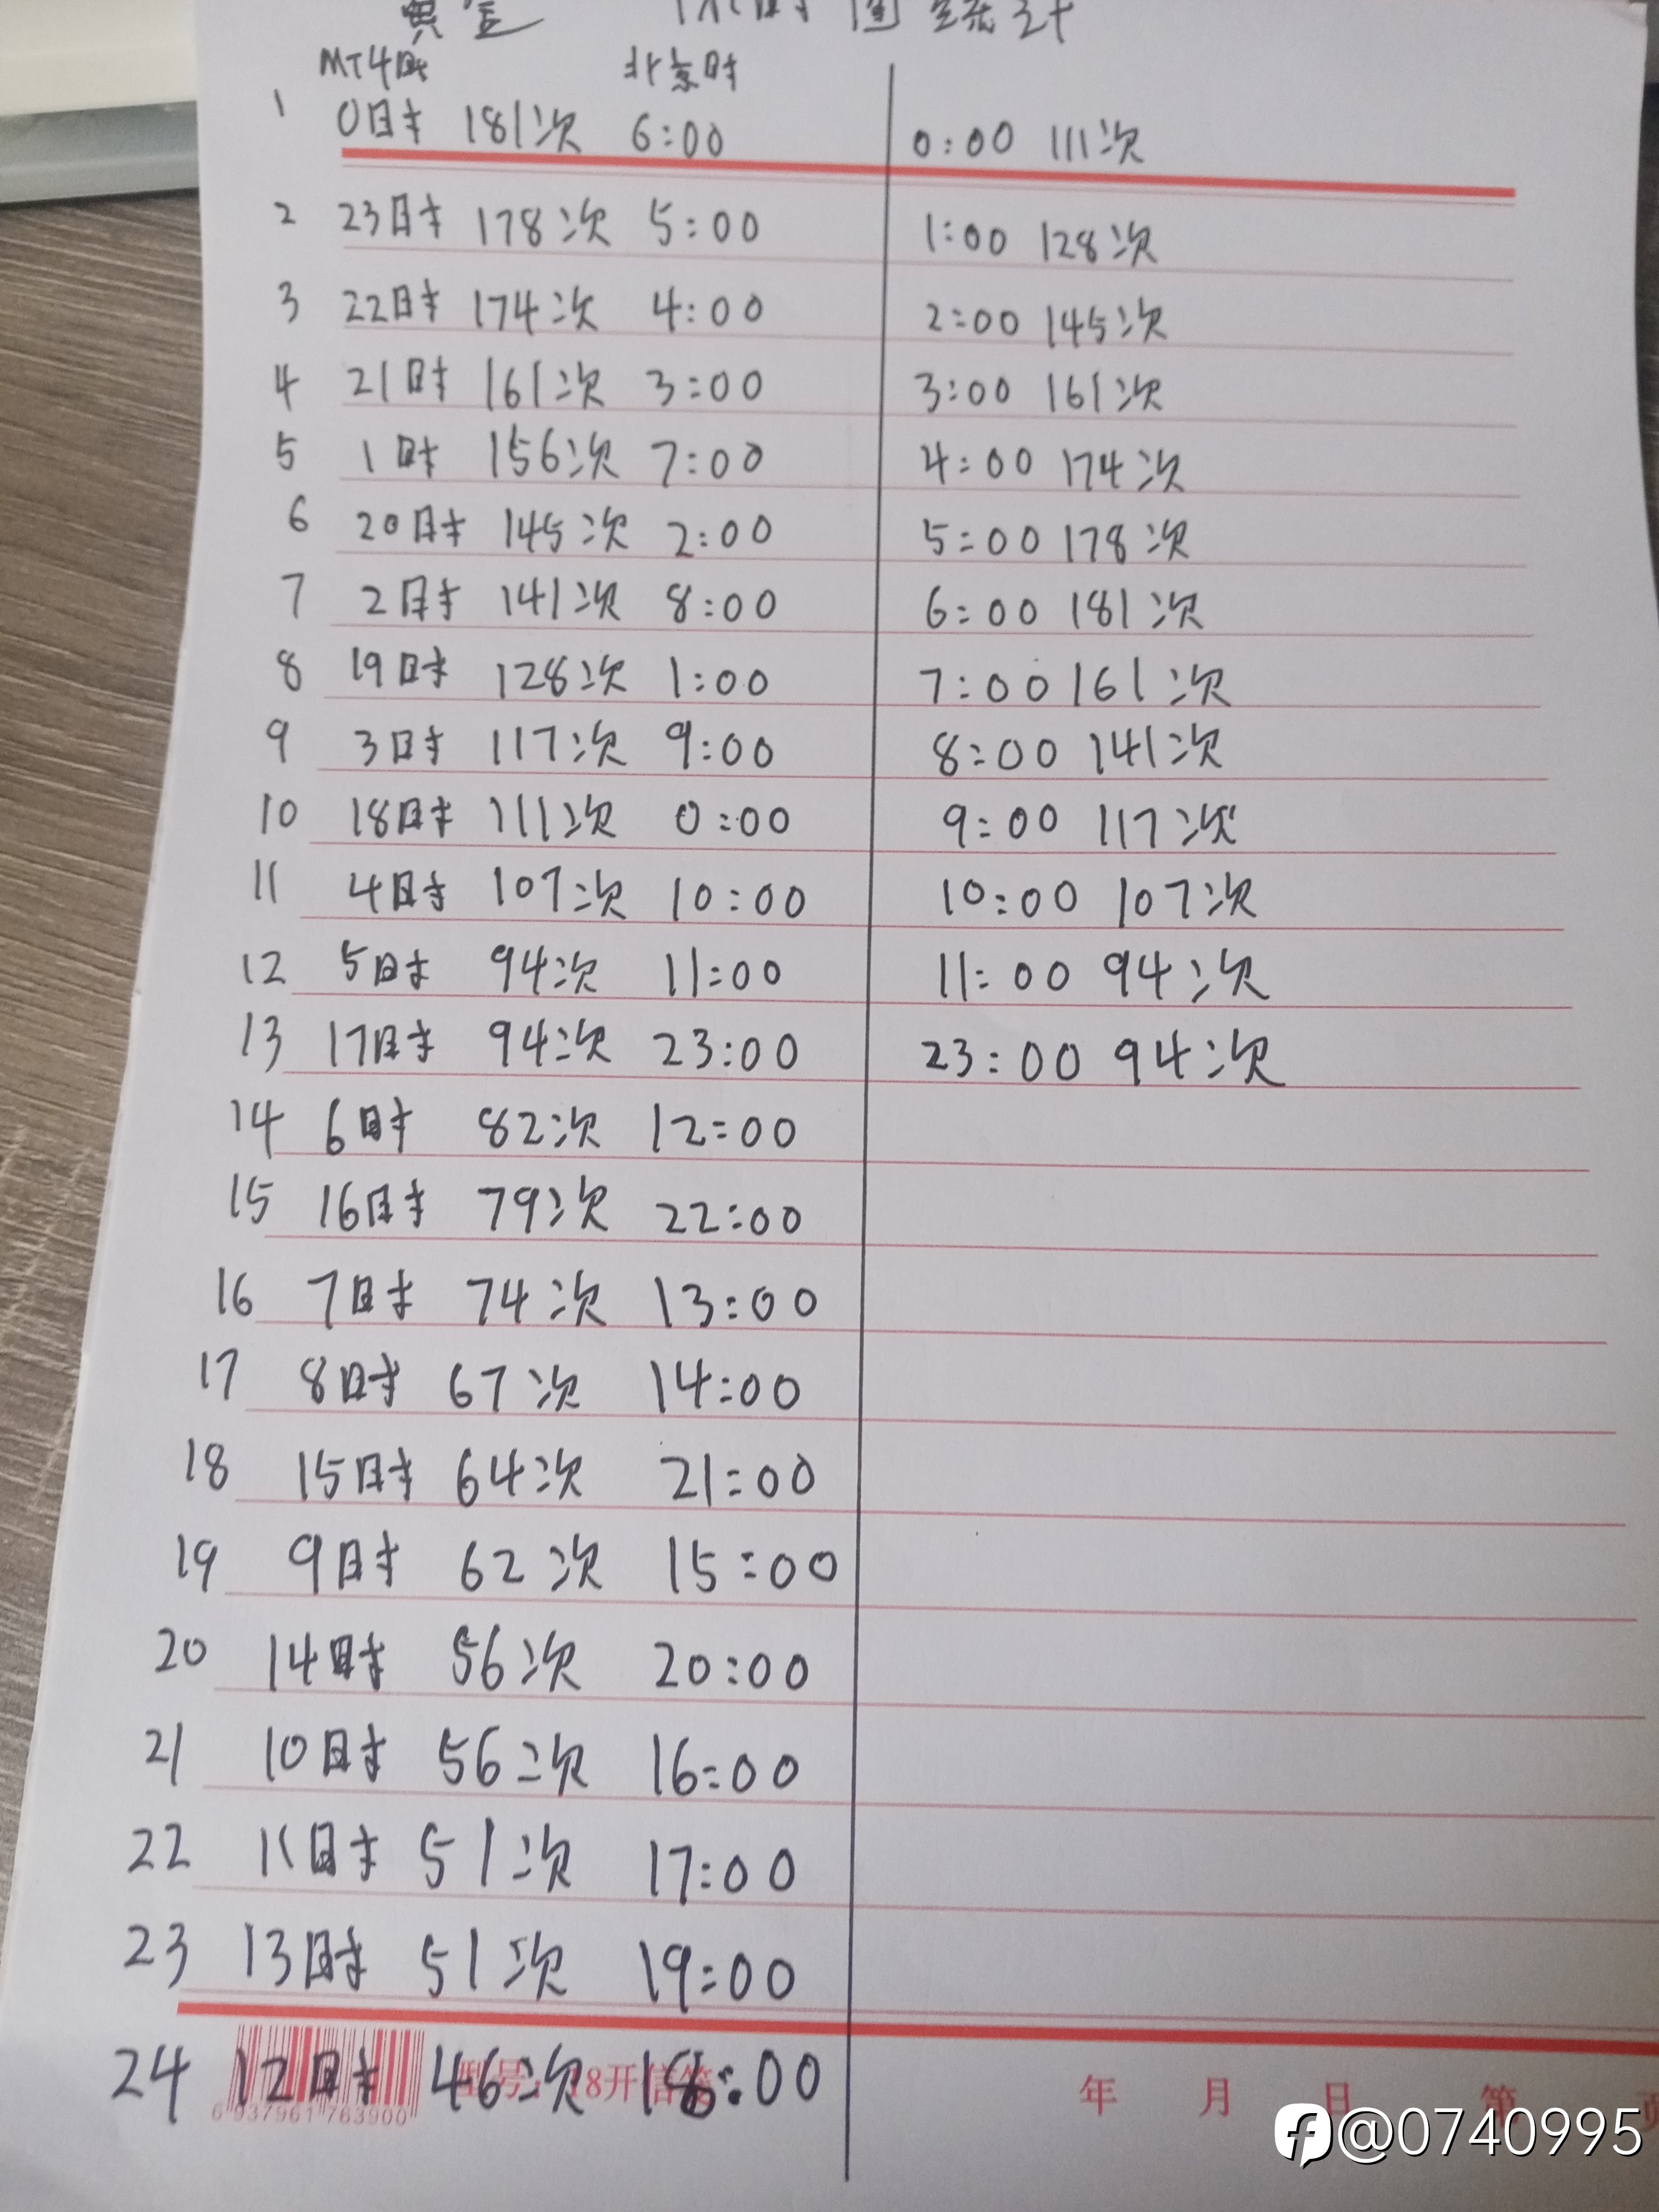 黄金 休时间 统计
MT4时 北京时
1 0时 181次 6:00 0:00 111次
2 23时 178次 5:00 1:00 128次
3 22时 174次 4:00 2:00 145次
4 21时 161次 3:00 3:00 161次
5 1时 156次 7:00 4:00 174次
6 20时 145次 2:00 5:00 178次
7 2时 141次 8:00 6:00 181次
8 19时 128次 1:00 7:00 161次
9 3时 117次 9:00 8:00 141次
10 18时 111次 0:00 9:00 117次
11 4时 107次 10:00 10:00 107次
12 5时 94次 11:00 11:00 94次
13 17时 94次 23:00 23:00 94次
14 6时 82次 12:00
15 16时 79次 22:00
16 7时 74次 13:00
17 8时 67次 14:00
18 15时 64次 21:00
19 9时 62次 15:00
20 14时 56次 20:00
21 10时 56次 16:00
22 11时 51次 17:00
23 13时 51次 19:00
24 12时 46次 18:00
6 937961 763900 型号: 18开信笺 年 月 日 第 页
@0740995